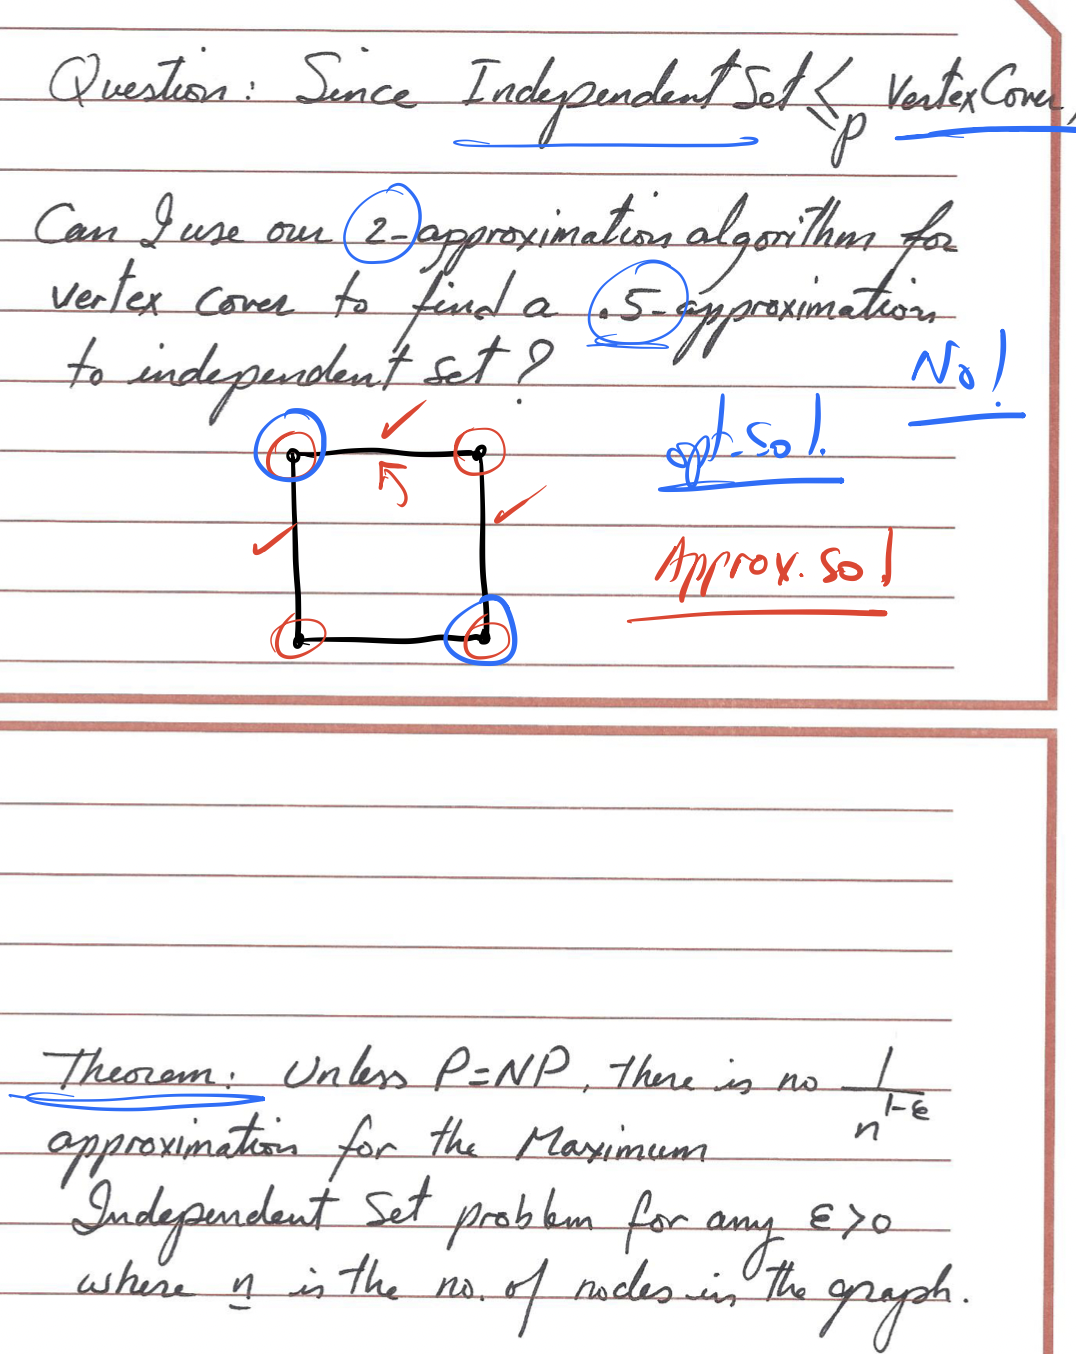 Question: Since Independent Set ≤p Vertex Cover,
Can I use our 2-approximation algorithm for
vertex cover to find a .5-approximation
to independent set?
No!
opt. sol.
Approx. sol
Theorem: Unless P=NP, there is no 1/n^(1-ε)
approximation for the Maximum
Independent Set problem for any ε>0
where n is the no. of nodes in the graph.